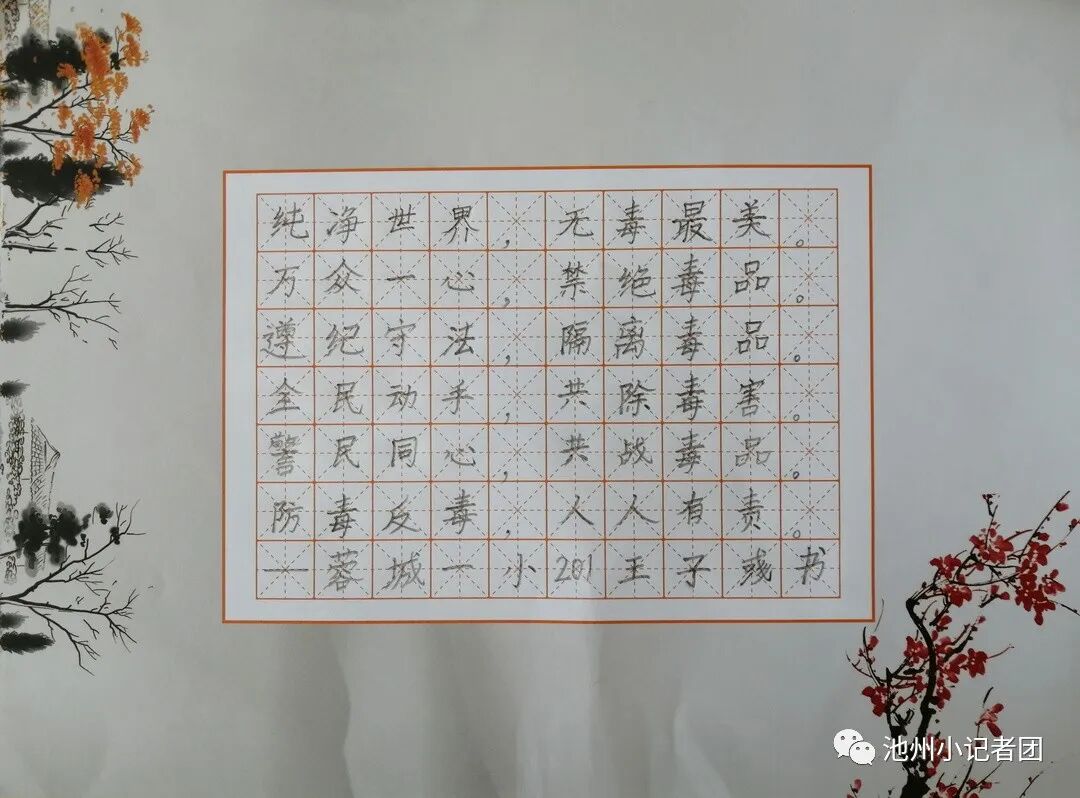 纯净世界，无毒最美。
万众一心，禁绝毒品。
遵纪守法，隔离毒品。
全民动手，共除毒害。
警民同心，共战毒品。
防毒反毒，人人有责。
一蓉城一小201王子彧书
池州小记者团